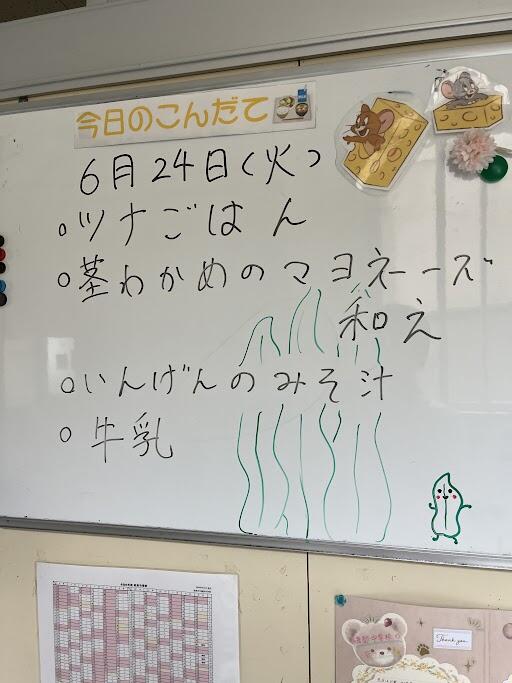 今日のこんだて
6月24日(火)
○ツナごはん
○茎わかめのマヨネーズ
和え
○いんげんのみそ汁
○牛乳
Thank you